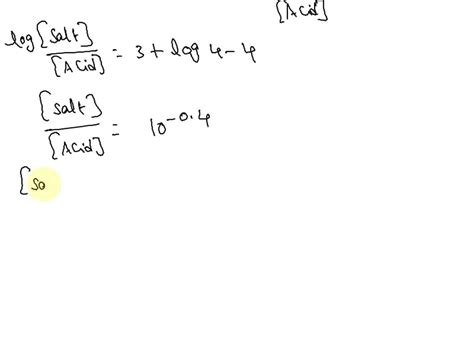 [Acid]
log [Salt] / [Acid] = 3 + log 4 - 4
[Salt] / [Acid] = 10^-0.4
[So